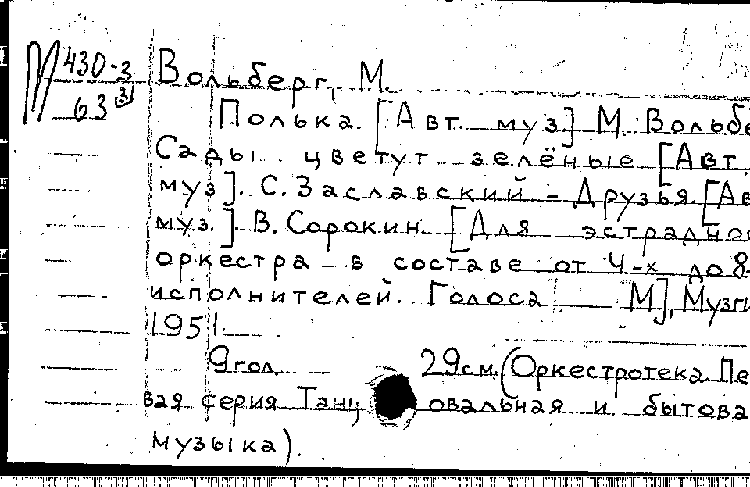 М 430-3
63 31
Вольберг, М.
Полька. [Авт. муз.] М. Вольбе
Сады цветут зелёные [Авт.
муз]. С. Заславский - Друзья [Ав
муз.]. В. Сорокин. [Для эстрадно
оркестра в составе от 4-х до 8
исполнителей. Голоса М], Музги
1951
9 гол. 29 см. (Оркестротека. Пе
вая серия Танц овальная и бытова
музыка).